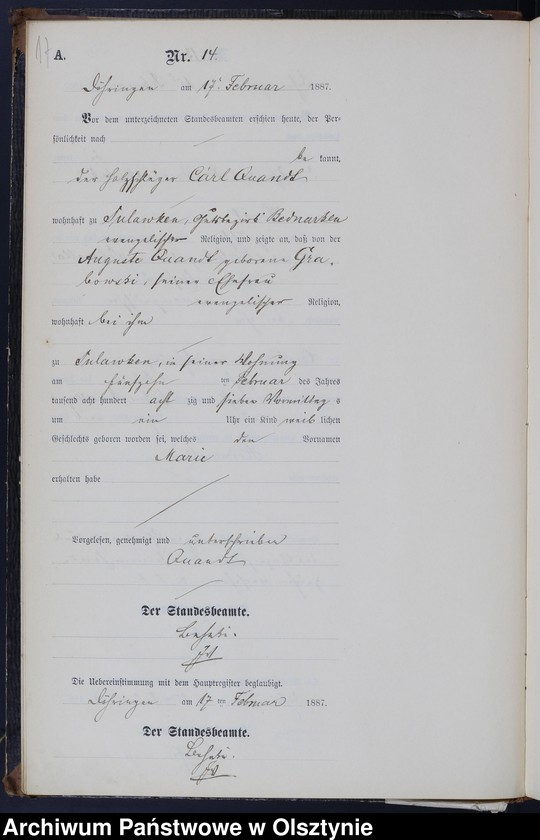 17
A. Nr. 14.
Döhringen am 17t Februar 1887.
Vor dem unterzeichneten Standesbeamten erschien heute, der Per-
sönlichkeit nach
be kannt,
der Holzschläger Carl Quandt
wohnhaft zu Tulawken, Gutsbezirk Bednarken
evangelischer Religion, und zeigte an, daß von der
Auguste Quandt geborene Gra-
bowski, seiner Ehefrau
evangelischer Religion,
wohnhaft bei ihm
zu Tulawken, in seiner Wohnung
am fünfzehn ten Februar des Jahres
tausend acht hundert acht zig und sieben Vormittag s
um ein Uhr ein Kind weib lichen
Geschlechts geboren worden sei, welches den Vornamen
Marie
erhalten habe
Vorgelesen, genehmigt und unterschrieben
Quandt
Der Standesbeamte.
Die Uebereinstimmung mit dem Hauptregister beglaubigt.
Döhringen am 17 ten Februar 1887.
Der Standesbeamte.
Archiwum Państwowe w Olsztynie